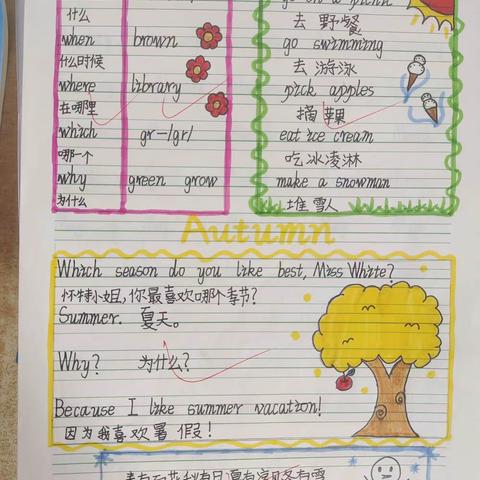 什么
when brown
什么时候
where library
在哪里
which gr-/gr/
哪一个
why green grow
为什么
go on a picnic
去 野餐
go swimming
去 游泳
pick apples
摘 苹果
eat ice cream
吃 冰凌淋
make a snowman
堆 雪人
Autumn
Which season do you like best, Miss White?
怀特小姐,你最喜欢哪个季节?
Summer. 夏天。
Why? 为什么?
Because I like summer vacation!
因为我喜欢暑 假!